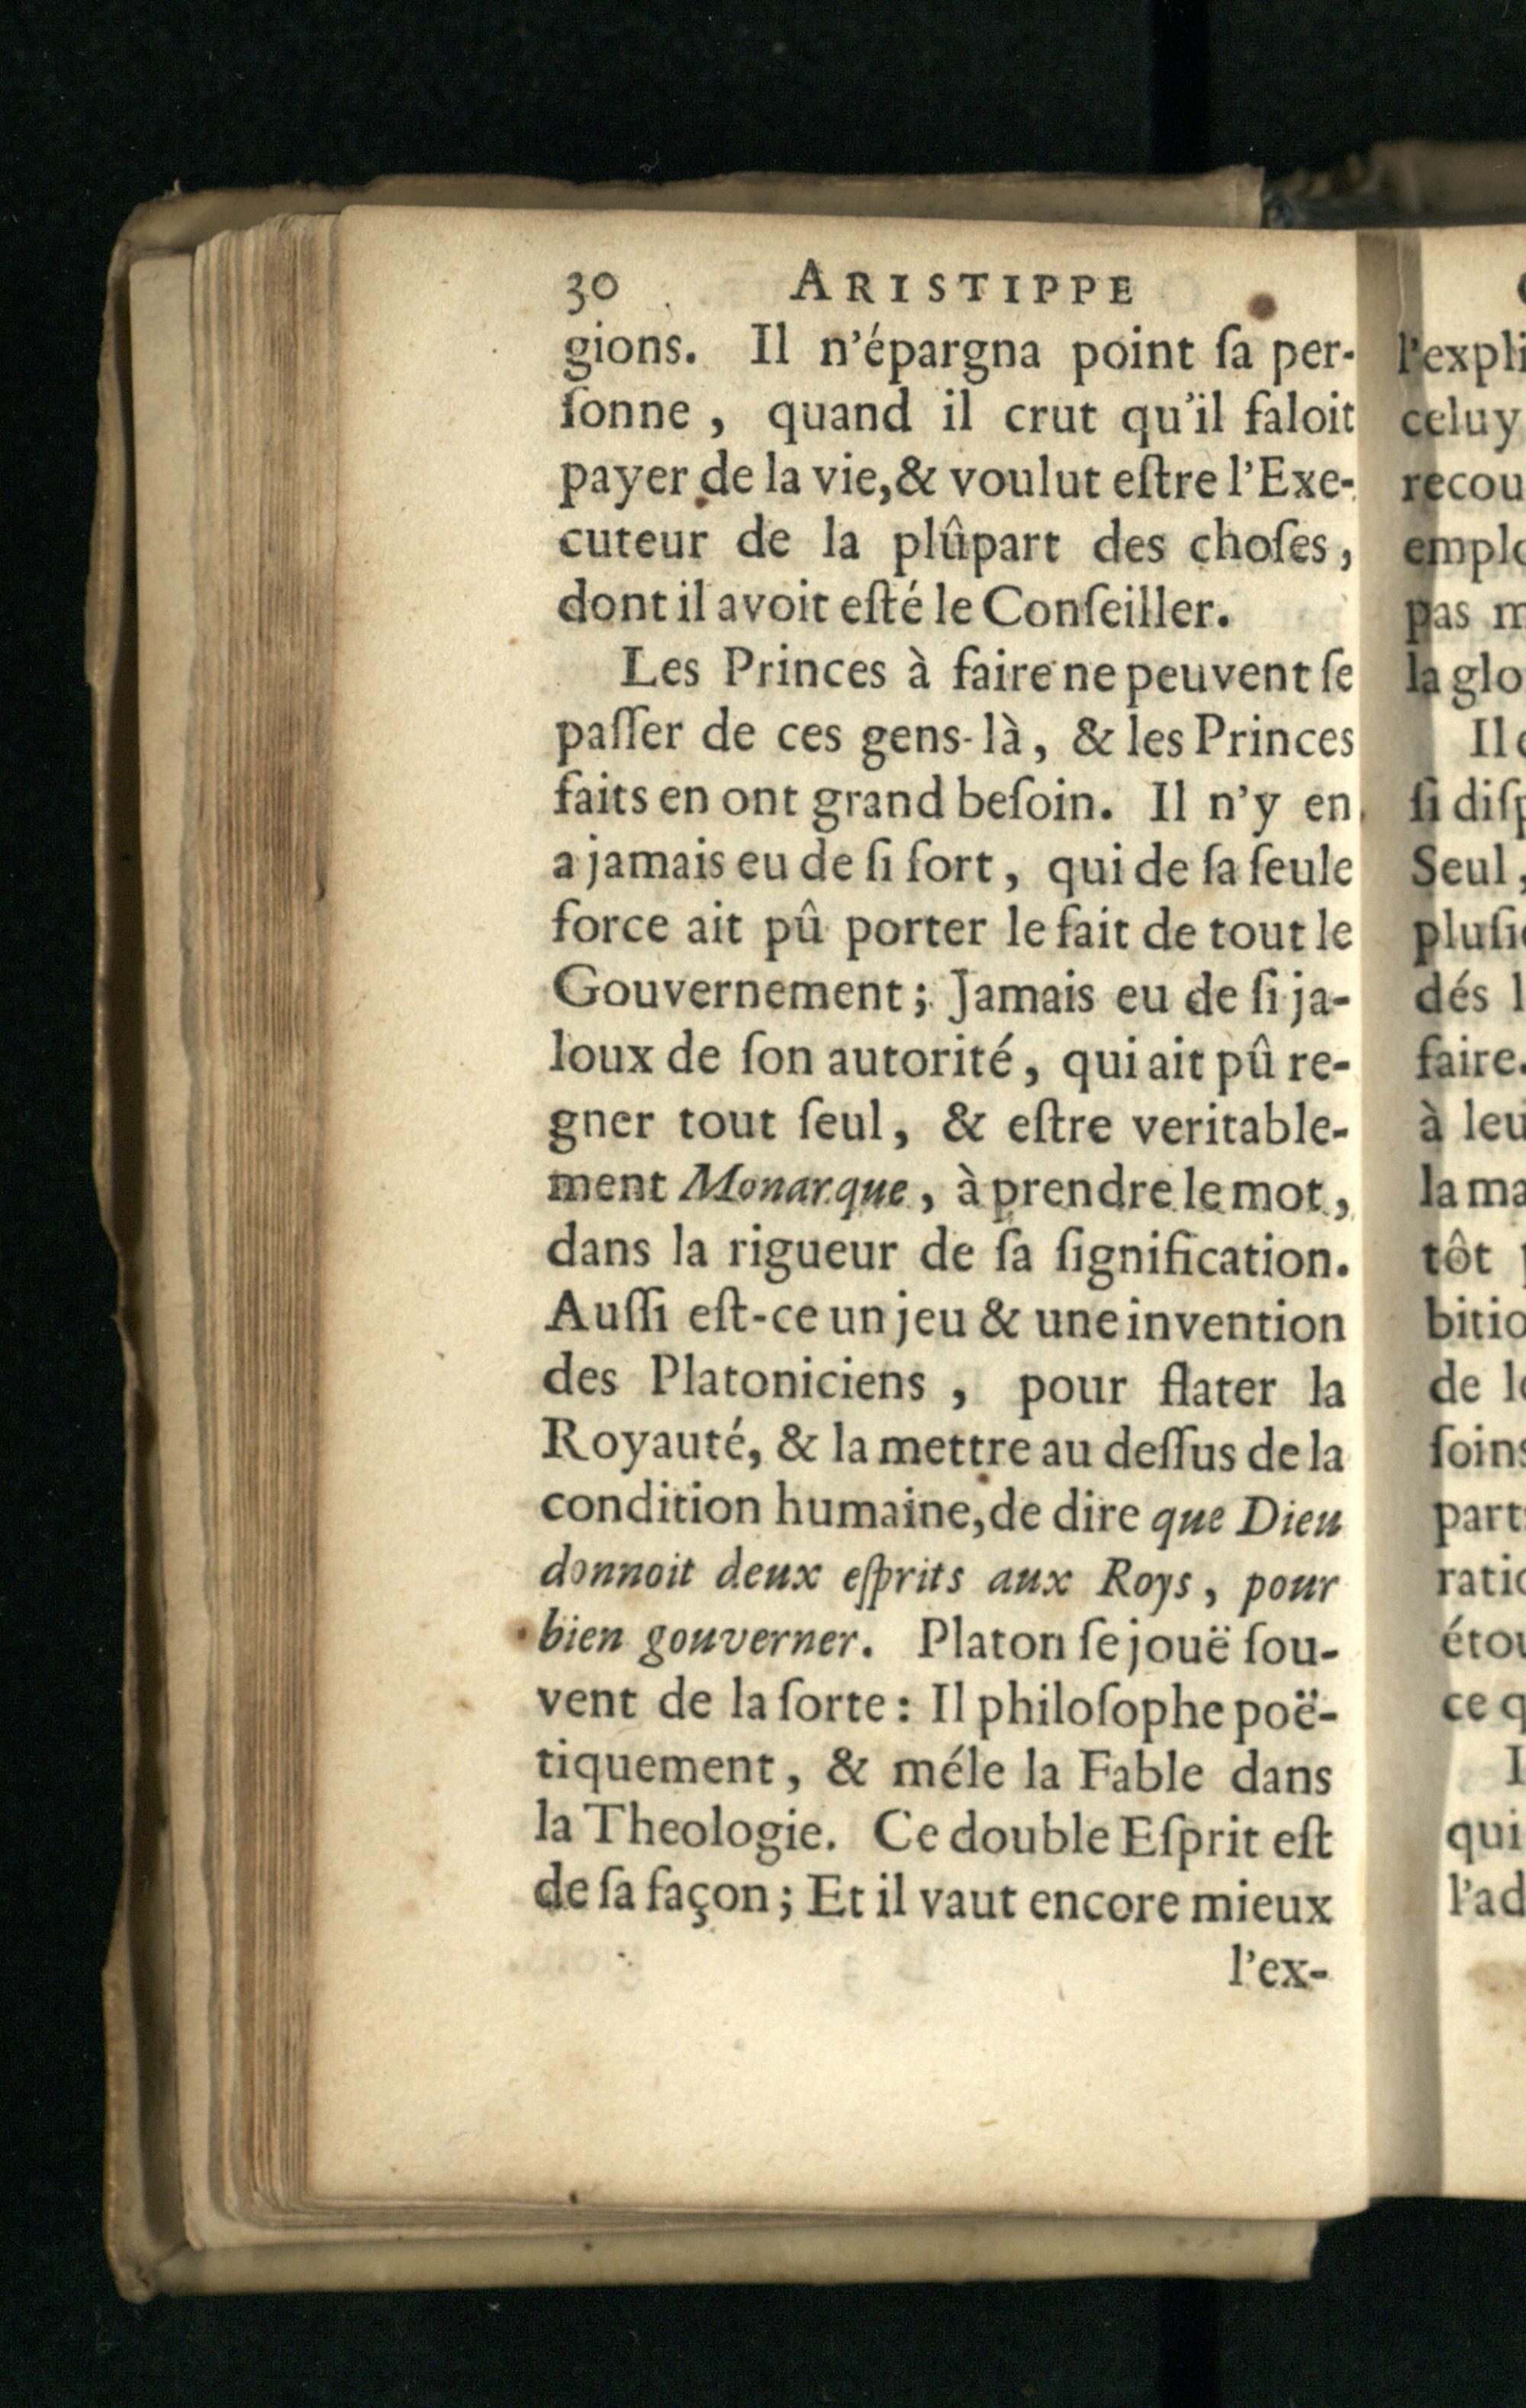 30 ARISTIPPE
gions. Il n'épargna point ſa per-
ſonne, quand il crut qu'il faloit
payer de la vie, & voulut eſtre l'Exe-
cuteur de la plûpart des choſes,
dont il avoit eſté le Conſeiller.
Les Princes à faire ne peuvent ſe
paſſer de ces gens-là, & les Princes
faits en ont grand beſoin. Il n'y en
a jamais eu de ſi fort, qui de ſa ſeule
force ait pû porter le fait de tout le
Gouvernement; Jamais eu de ſi ja-
loux de ſon autorité, qui ait pû re-
gner tout ſeul, & eſtre veritable-
ment Monarque, à prendre le mot,
dans la rigueur de ſa ſignification.
Auſſi eſt-ce un jeu & une invention
des Platoniciens, pour flater la
Royauté, & la mettre au deſſus de la
condition humaine, de dire que Dieu
donnoit deux eſprits aux Roys, pour
bien gouverner. Platon ſe jouë ſou-
vent de la ſorte: Il philoſophe poë-
tiquement, & méle la Fable dans
la Theologie. Ce double Eſprit eſt
de ſa façon; Et il vaut encore mieux
l'ex-
l'expli
celuy
recou
emplo
pas m
la glo
Il
ſi diſp
Seul,
pluſie
dés l
faire.
à leu
la ma
tôt
bitio
de le
ſoins
part
ratio
étou
ce q
I
qui
l'ad